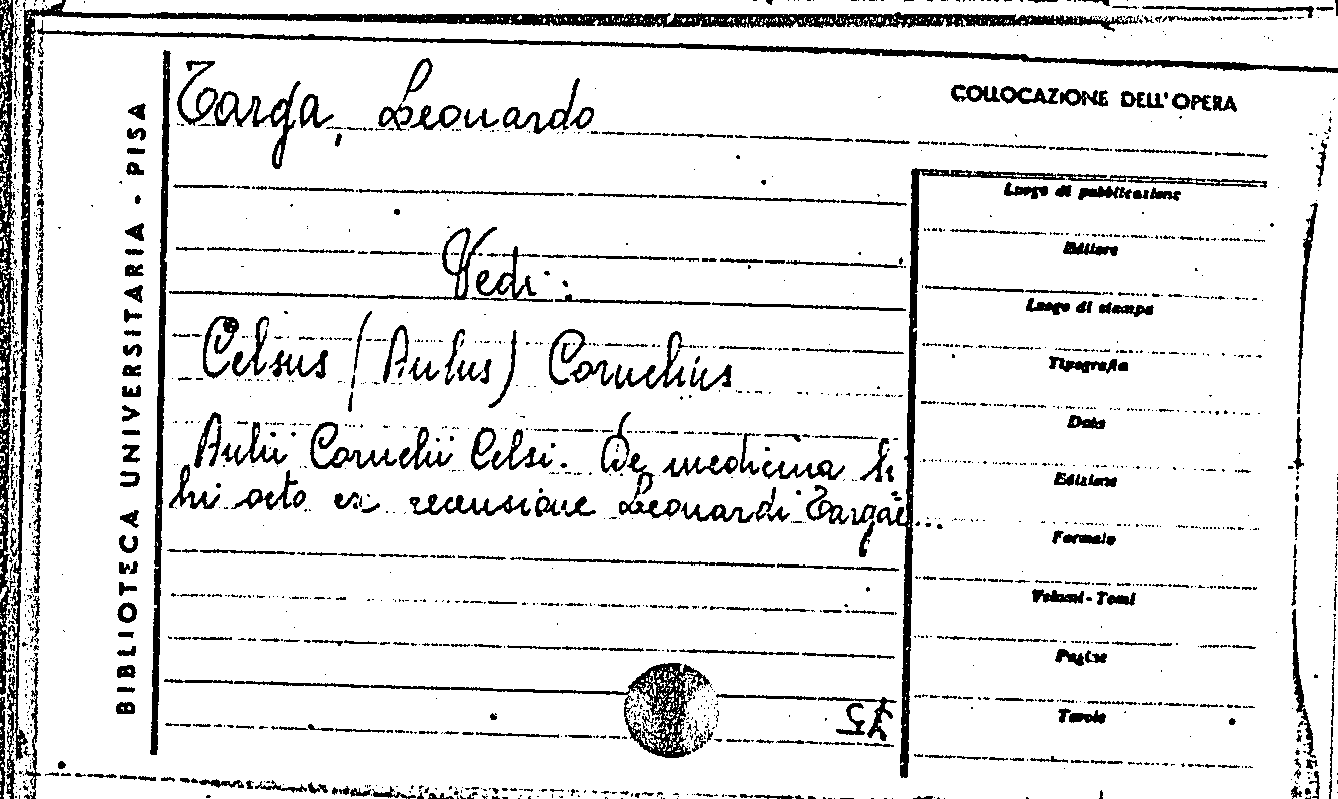 BIBLIOTECA UNIVERSITARIA - PISA
Targa, Leonardo
COLLOCAZIONE DELL'OPERA
Vedi:
Celsus (Aulus) Cornelius
Aulii Cornelii Celsi. De medicina li
bri octo ex recensione Leonardi Targae...
Luogo di pubblicazione
Editore
Luogo di stampa
Tipografia
Data
Edizione
Formato
Volumi - Tomi
Pagine
Tavole